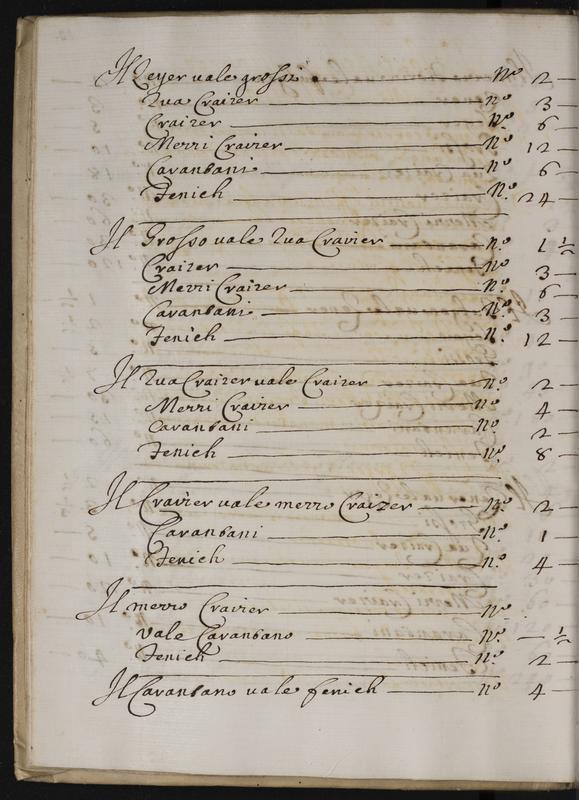 Il Zeyer uale grossi n.o 2 —
Zua Craizer n.o 3 —
Craizer n.o 6 —
Mezzi Craizer n.o 12 —
Carantani n.o 6 —
Fenich n.o 24 —
Il Grosso uale Zua Craizer n.o 1 ½
Craizer n.o 3 —
Mezzi Craizer n.o 6 —
Carantani n.o 3 —
Fenich n.o 12 —
Il Zua Craizer uale Craizer n.o 2 —
Mezzi Craizer n.o 4 —
Carantani n.o 2 —
Fenich n.o 8 —
Il Craizer uale mezzo Craizer n.o 2 —
Carantani n.o 1 —
Fenich n.o 4 —
Il mezzo Craizer n.o
vale Carantano n.o — ½
Fenich n.o 2 —
Il Carantano uale fenich n.o 4 —